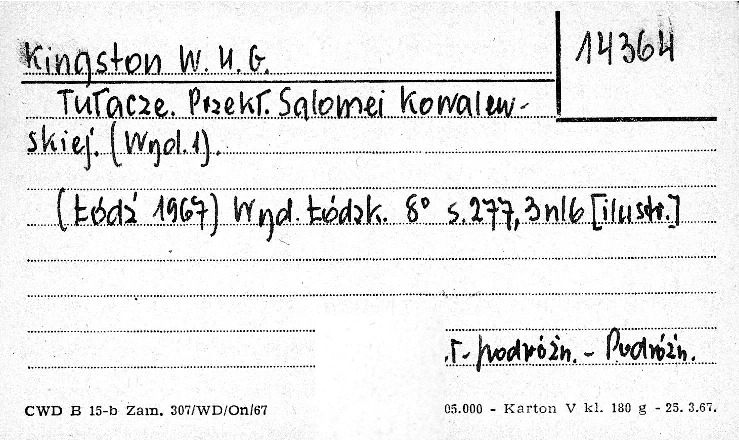 Kingston W. H. G.
14364
Tułacze. Przekł. Salomei Kowalew-
skiej. (Wyd. 1).
(Łódź 1967) Wyd. Łódzk. 8° s. 277, 3 nlb [ilustr.]
.T- podróżn. - Podróżn.
CWD B 15-b Zam. 307/WD/On/67
05.000 - Karton V kl. 180 g - 25. 3.67.